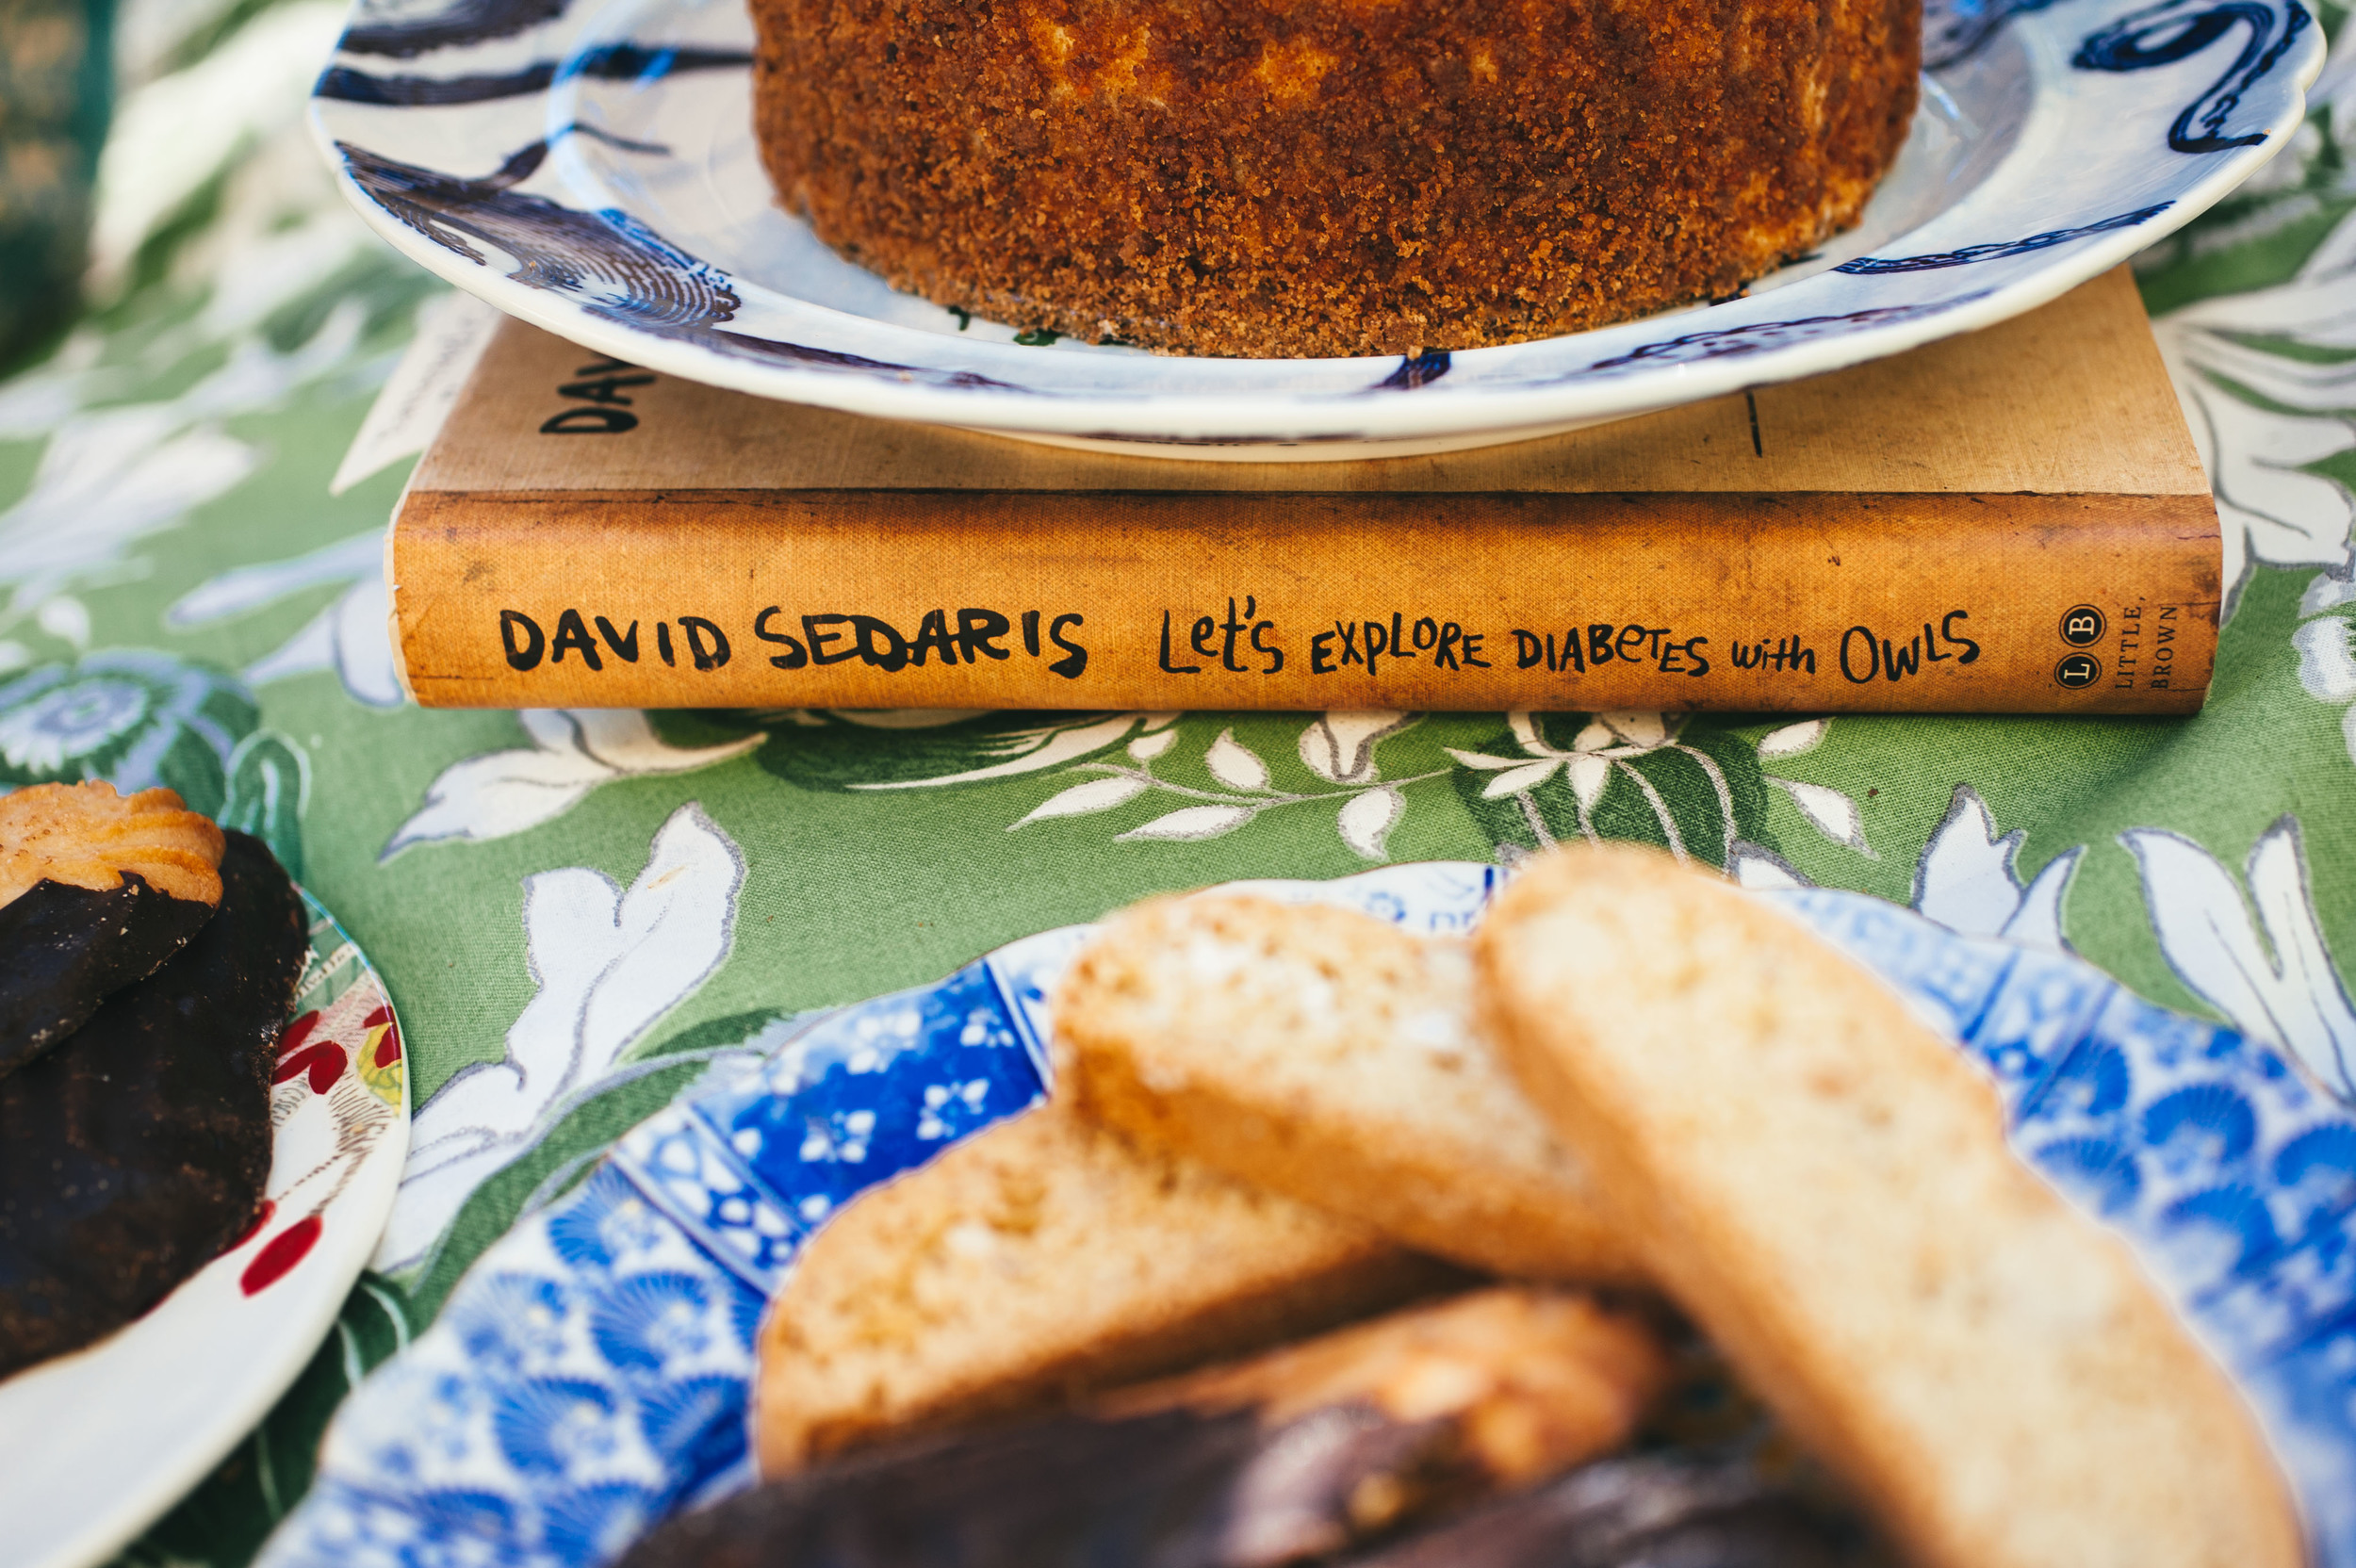 DAV
DAVID SEDARIS Let's EXPLORE DIABETES with OWLS
LB
LITTLE,
BROWN